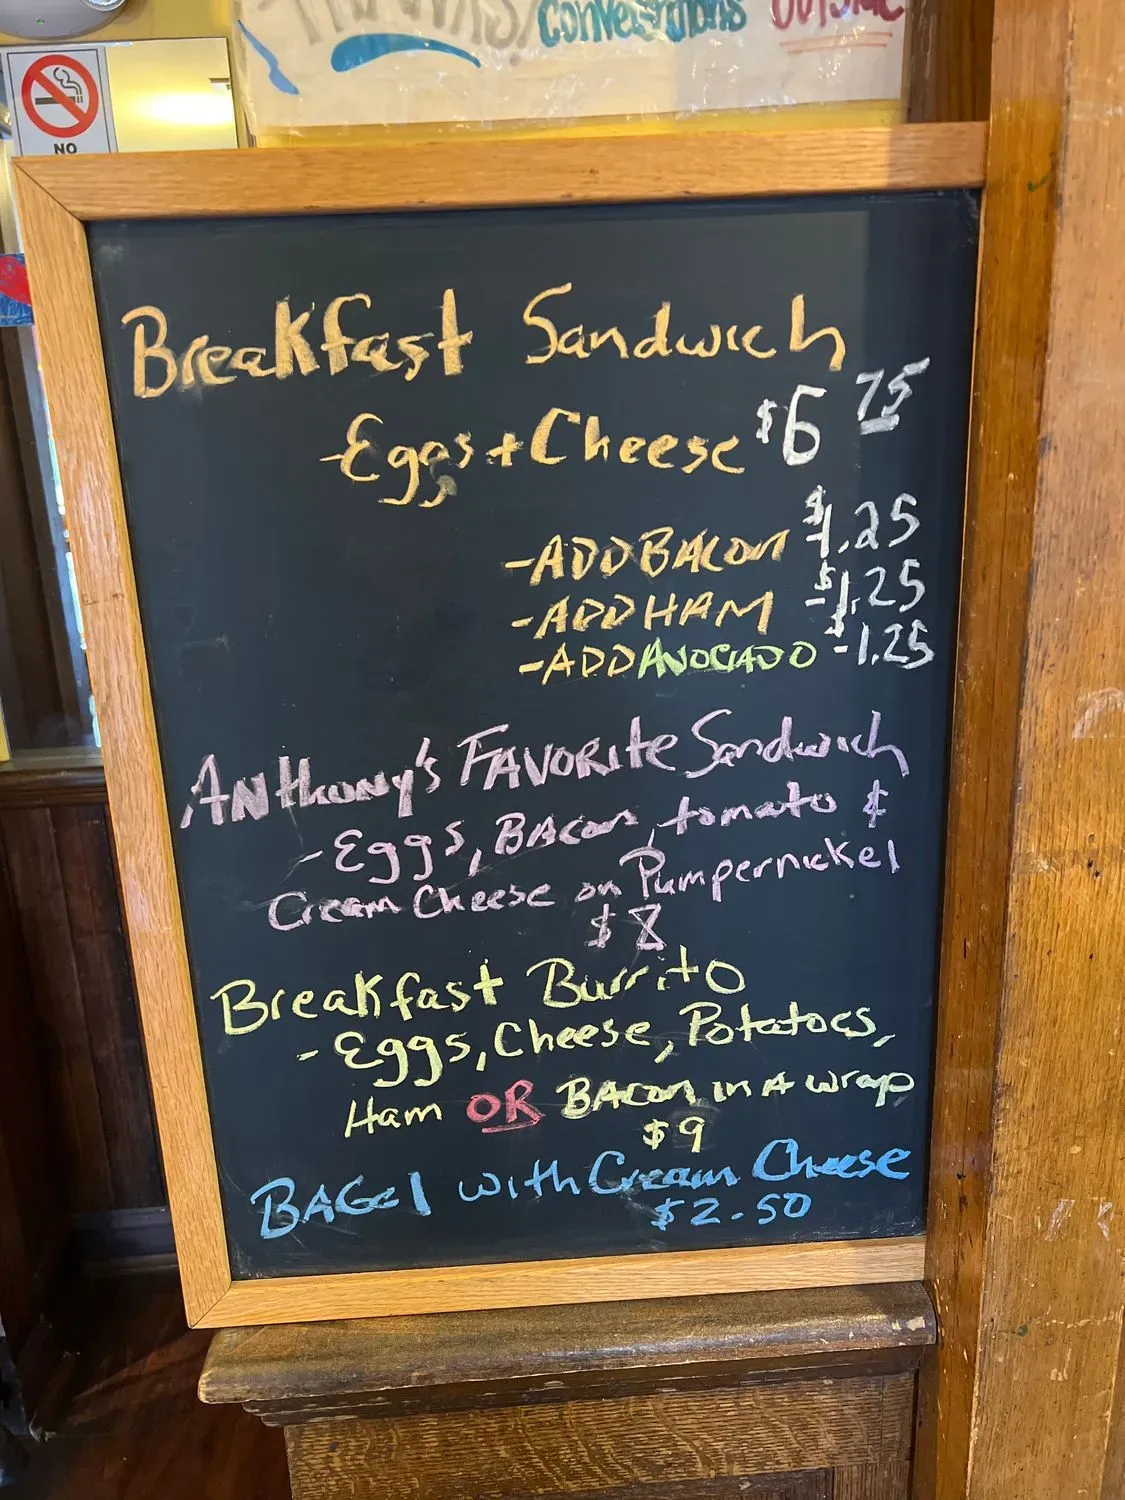 THANKS!
Conversations
OUTSIDE
NO
Breakfast Sandwich
-Eggs + Cheese $6 75
-ADD BACON $1.25
-ADD HAM -$1.25
-ADD AVOCADO -$1.25
ANthony's FAVORite Sandwich
-Eggs, BAcon, tomato &
Cream Cheese on Pumpernickel
$8
Breakfast Burrito
-Eggs, Cheese, Potatoes,
Ham OR BAcon in A wrap
$9
BAGel with Cream Cheese
$2.50